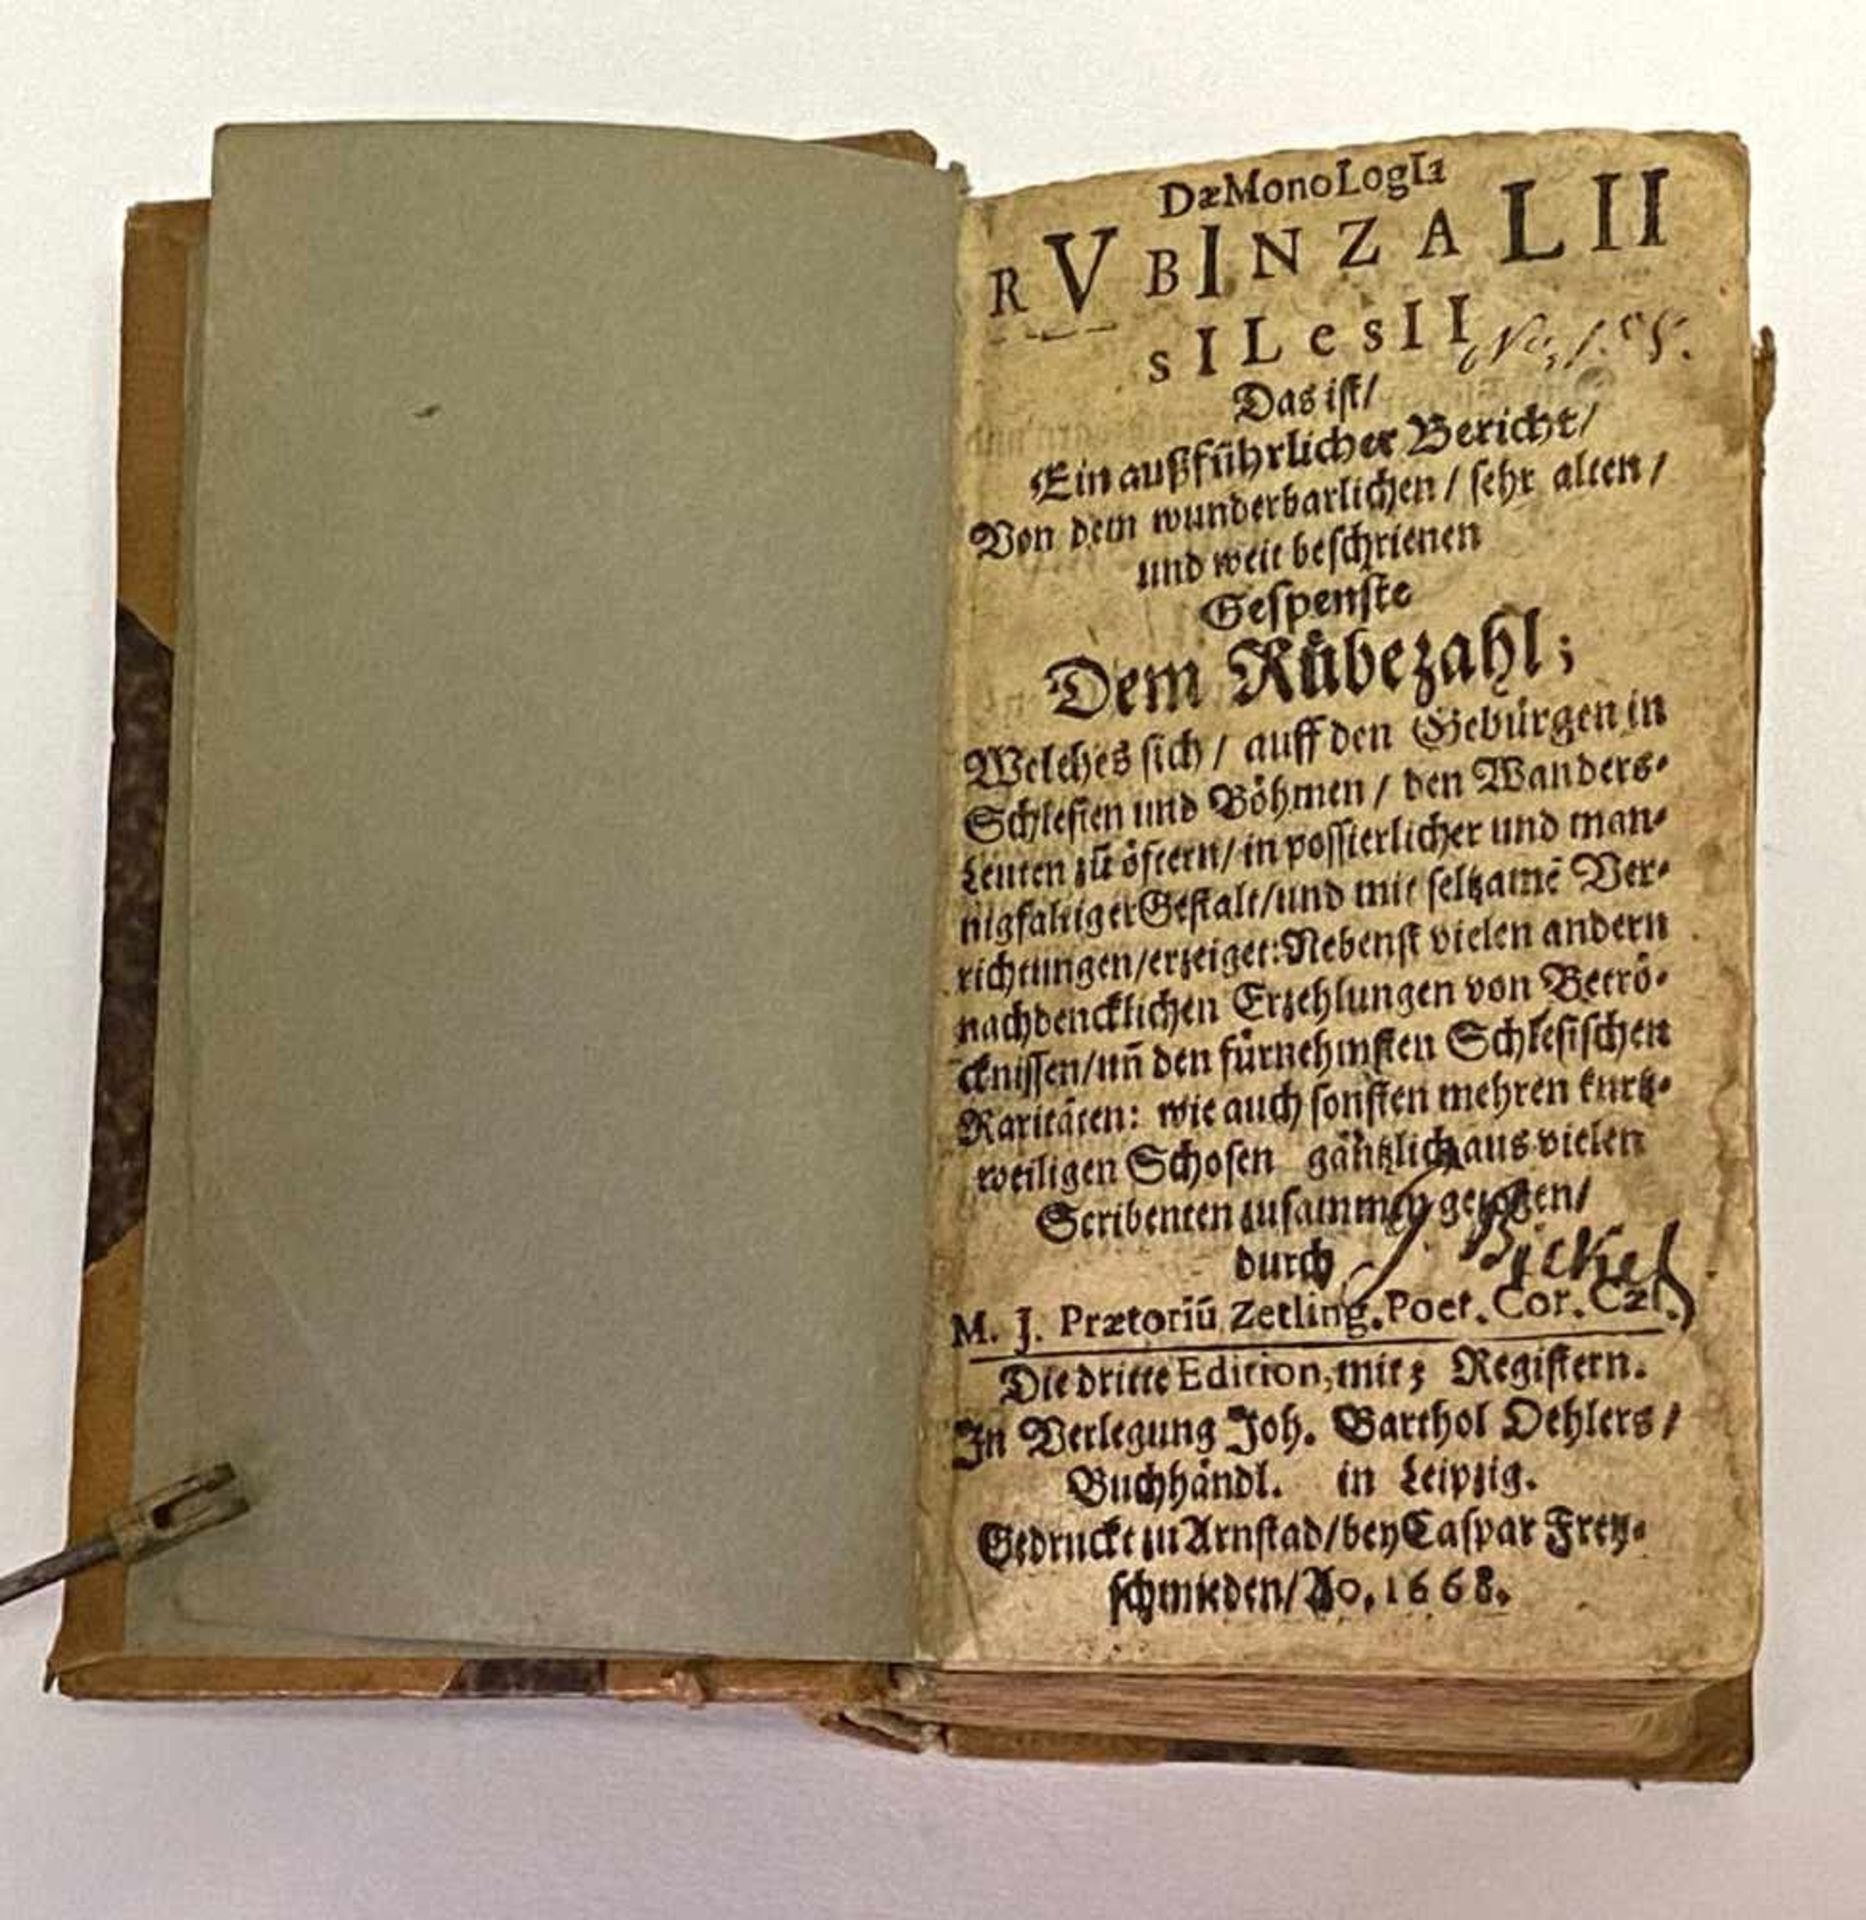 DæMonoLogIæ
RVBINZALII
sILesII
Das iſt/
Ein außführlicher Bericht/
Von dem wunderbarlichen/ ſehr alten/
und weit beſchrienen
Geſpenſte
Dem Rübezahl;
Welches ſich/ auff den Gebürgen in
Schleſien und Böhmen/ den Wanders-
Leuten zů öftern/ in poſſierlicher und man-
nigfaltiger Geſtalt/und mit ſeltzamē Ver-
richtungen/erzeiget: Nebenſt vielen andern
nachdencklichen Erzehlungen von Beerö-
cknissen/un̄ den fürnehmſten Schleſiſchen
Raritäten: wie auch ſonſten mehren kurtz-
weiligen Schoſen gäntzlich aus vielen
Scribenten zuſammen gezogen/
durch
Bickel
M. J. Prætoriū Zetling. Poet. Cor. Cæſ.
Die dritte Edition, mit 3 Regiſtern.
In Verlegung Joh. Barthol Oehlers/
Buchhändl. in Leipzig.
Gedruckt zu Arnſtad/bey Caſpar Frey-
ſchmieden/Ao. 1668.